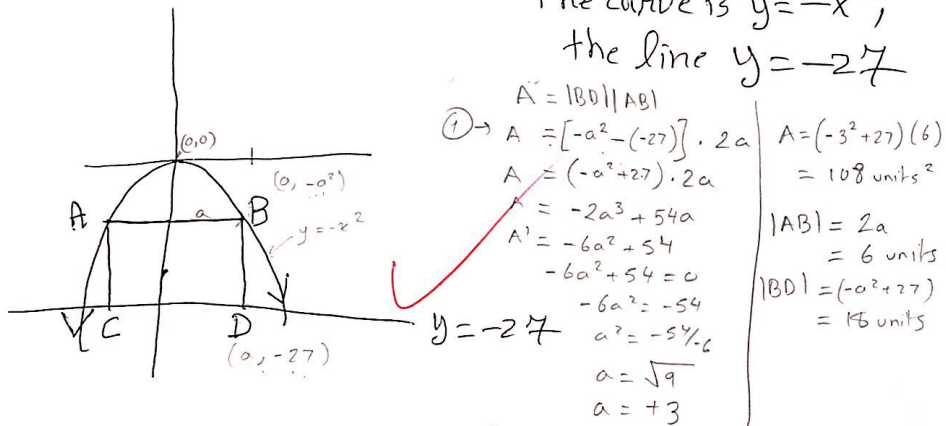 The curve is y=-x²,
the line y=-27
(0,0)
(a, -a²)
A
a
B
y=-x²
C
D
y=-27
(a, -27)
A = |BD||AB|
①→ A = [-a²-(-27)]·2a
A = (-a²+27)·2a
A = -2a³+54a
A' = -6a²+54
-6a²+54=0
-6a²=-54
a²=-54/-6
a=√9
a=+3
A=(-3²+27)(6)
= 108 units²
|AB| = 2a
= 6 units
|BD| = (-a²+27)
= 18 units